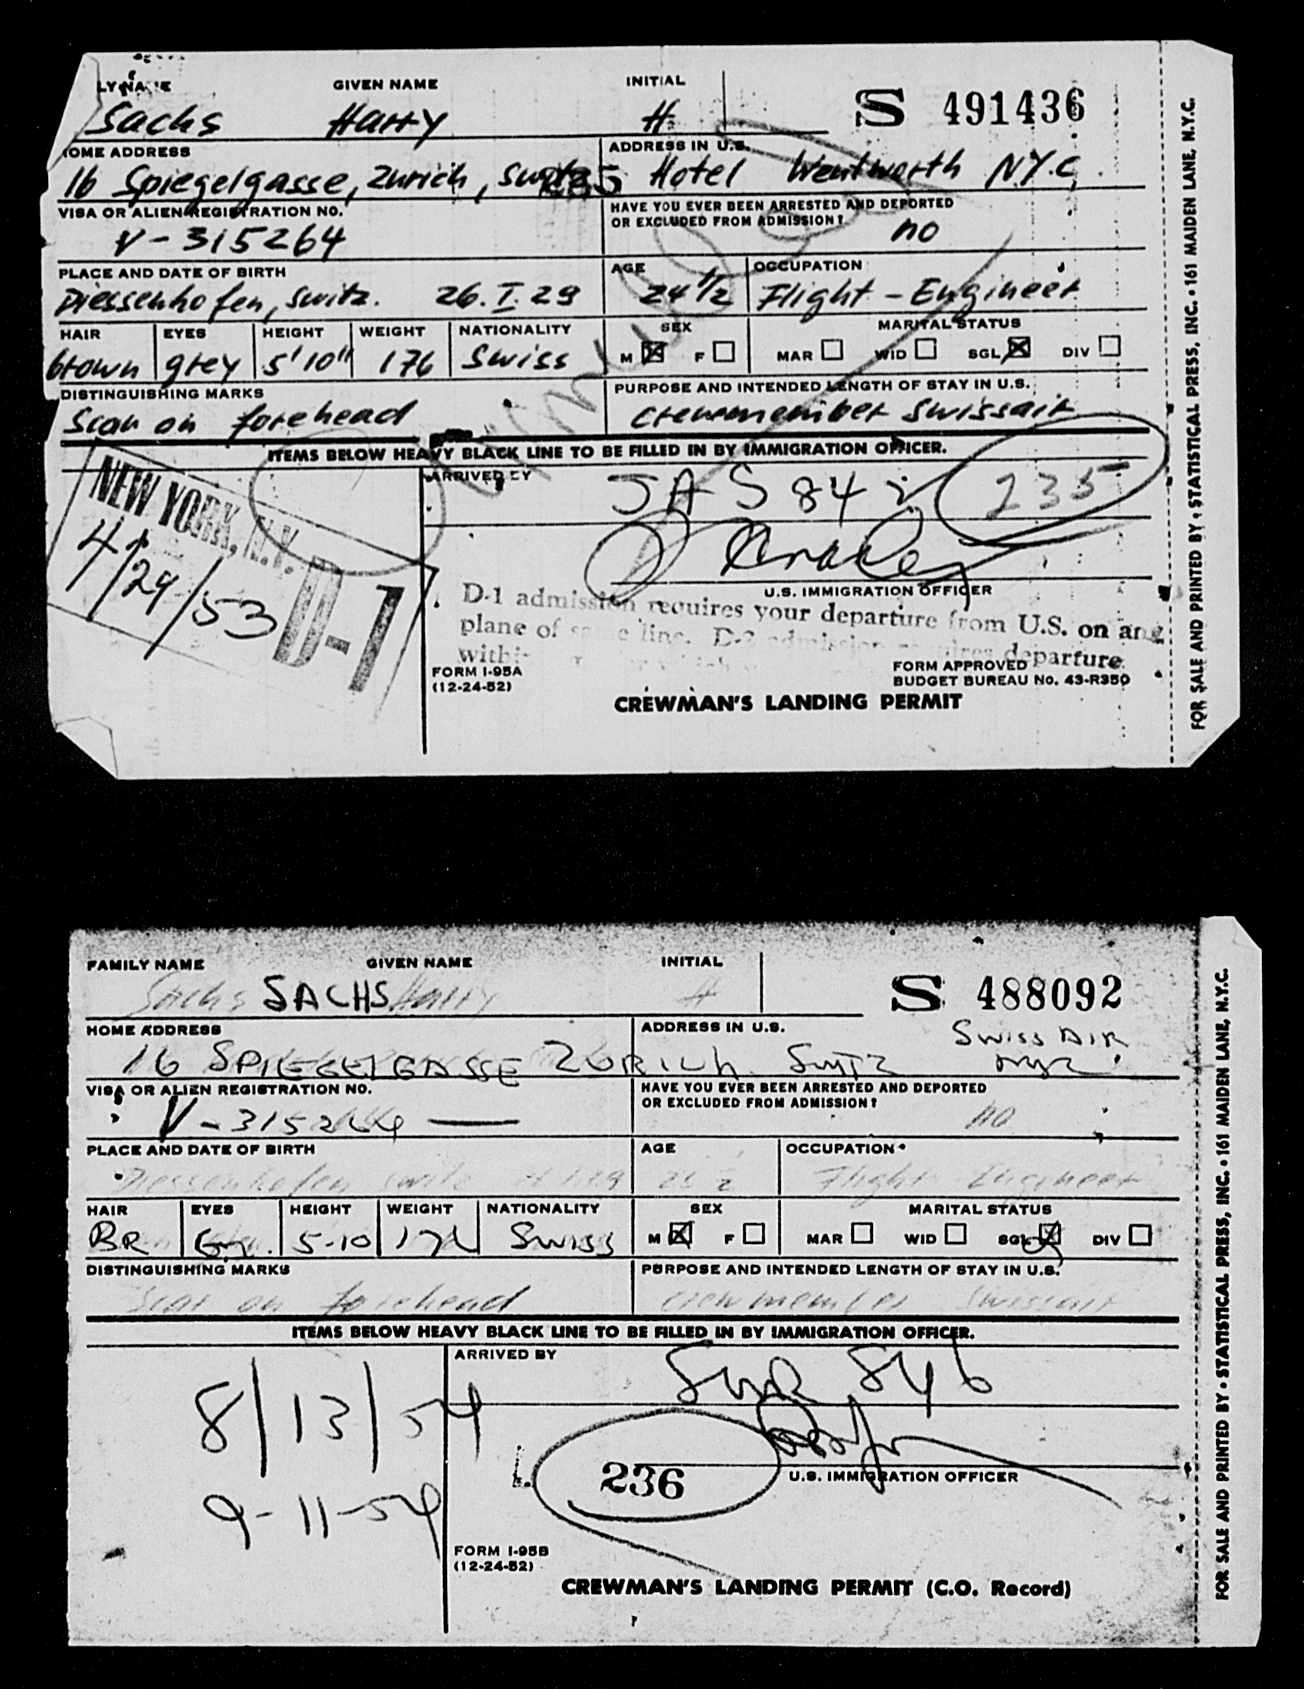 LY NAME GIVEN NAME INITIAL
Sachs Harry H S 491436
HOME ADDRESS ADDRESS IN U.S.
16 Spiegelgasse, Zurich, Switz 235 Hotel Wentworth N.Y.C.
VISA OR ALIEN REGISTRATION NO. HAVE YOU EVER BEEN ARRESTED AND DEPORTED
OR EXCLUDED FROM ADMISSION?
V-315264 no
PLACE AND DATE OF BIRTH AGE OCCUPATION
Diessenhofen, Switz. 26.I.29 24 1/2 Flight-Engineer
HAIR EYES HEIGHT WEIGHT NATIONALITY SEX MARITAL STATUS
brown grey 5'10" 176 Swiss M F MAR WID SGL DIV
DISTINGUISHING MARKS PURPOSE AND INTENDED LENGTH OF STAY IN U.S.
Scar on forehead crewmember Swissair
ITEMS BELOW HEAVY BLACK LINE TO BE FILLED IN BY IMMIGRATION OFFICER.
ARRIVED BY
NEW YORK, N.Y.
4/29/53
D-1
842 235
U.S. IMMIGRATION OFFICER
D-1 admission requires your departure from U.S. on
plane of same line. D-2 admission requires departure
FORM I-95A FORM APPROVED
(12-24-52) BUDGET BUREAU No. 43-R350
CREWMAN'S LANDING PERMIT
FOR SALE AND PRINTED BY • STATISTICAL PRESS, INC. • 161 MAIDEN LANE, N.Y.C.
FAMILY NAME GIVEN NAME INITIAL
Sachs SACHS Harry H S 488092
HOME ADDRESS ADDRESS IN U.S. SWISS AIR
16 SPIEGELGASSE ZURICH SWTZ NYC
VISA OR ALIEN REGISTRATION NO. HAVE YOU EVER BEEN ARRESTED AND DEPORTED
OR EXCLUDED FROM ADMISSION?
V-315264 no
PLACE AND DATE OF BIRTH AGE OCCUPATION
Diessenhofen Flight Engineer
HAIR EYES HEIGHT WEIGHT NATIONALITY SEX MARITAL STATUS
BR Gr. 5-10 176 SWISS M F MAR WID SGL DIV
DISTINGUISHING MARKS PURPOSE AND INTENDED LENGTH OF STAY IN U.S.
Scar on forehead crewmember Swissair
ITEMS BELOW HEAVY BLACK LINE TO BE FILLED IN BY IMMIGRATION OFFICER.
ARRIVED BY
SWR 846
8/13/54
236
U.S. IMMIGRATION OFFICER
9-11-54
FORM I-95B
(12-24-52)
CREWMAN'S LANDING PERMIT (C.O. Record)
FOR SALE AND PRINTED BY • STATISTICAL PRESS, INC. • 161 MAIDEN LANE, N.Y.C.